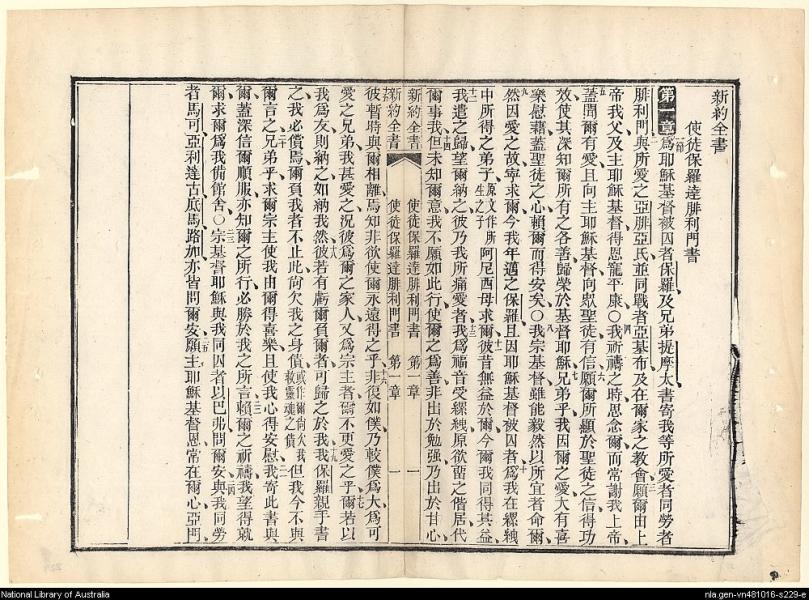 新約全書
使徒保羅達腓利門書
第一章爲耶穌基督被囚者保羅及兄弟提摩太書寄我等所愛者同勞者
腓利門與所愛之亞腓亞氏並同戰者亞基布及在爾家之教會願爾由上
帝我父及主耶穌基督得恩寵平康〇我祈禱之時思念爾而常謝我上帝
蓋聞爾有愛且向主耶穌基督向眾聖徒有信願爾所顯於聖徒之信得功
效使其深知爾所有之各善歸榮於基督耶穌兄弟乎我因爾之愛大有喜
樂慰藉蓋聖徒之心賴爾而得安矣〇我宗基督雖能毅然以所宜者命爾
然因愛之故寧求爾今我年邁之保羅且因耶穌基督被囚者爲我在縲絏
中所得之弟子原文作所生之子阿尼西母求爾彼昔無益於爾今爾我同得其益
我遣之歸望爾納之彼乃我所痛愛者我爲福音受縲絏原欲留之偕居代
爾事我但未知爾意我不願如此行使爾之爲善非出於勉強乃出於甘心
新約全書 使徒保羅達腓利門書 第一章 一
新約全書 使徒保羅達腓利門書 第一章 一
彼暫時與爾相離焉知非欲使爾永遠得之乎非復如僕乃較僕爲大爲可
愛之兄弟我甚愛之況彼爲爾之家人又爲宗主者爾不更愛之乎爾若以
我爲友則納之如納我然彼若有虧爾負爾者可歸之於我我保羅親手書
之我必償焉爾負我者不止此尚欠我之身債或作爾尚欠我救靈魂之債但我今不與
爾言之兄弟乎求爾宗主使我由爾得喜樂且使我心得安慰我寄此書與
爾蓋深信爾順服亦知爾之所行必勝於我之所言賴爾之祈禱我望得就
爾求爾爲我備館舍〇宗基督耶穌與我同囚者以巴弗問爾安與我同勞
者馬可亞利達古底馬路加亦皆問爾安願主耶穌基督恩常在爾心亞門
National Library of Australia
nla.gen-vn481016-s229-e